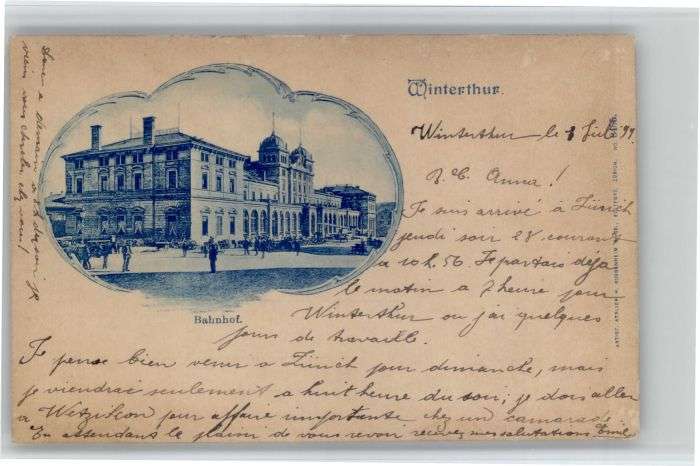 Winterthur.
Winterthur le 1 Juli 99
B. C. Anna!
Je suis arrivé à Zürich
jeudi soir 28 courant
a 10 h. 56. Je partais déja
le matin a 7 heure pour
Winterthur ou j'ai quelques
jours de travaille.
Bahnhof.
Je pense bien venir a Zürich pour dimanche, mais
je viendrai seulement a huit heure du soir; je dois aller
a Wetzikon pour affaire importante chez un camarade.
En attendant le plaisir de vous revoir recevez mes salutations Emil
a demain a du soir je
viens vous chercher chez vous!